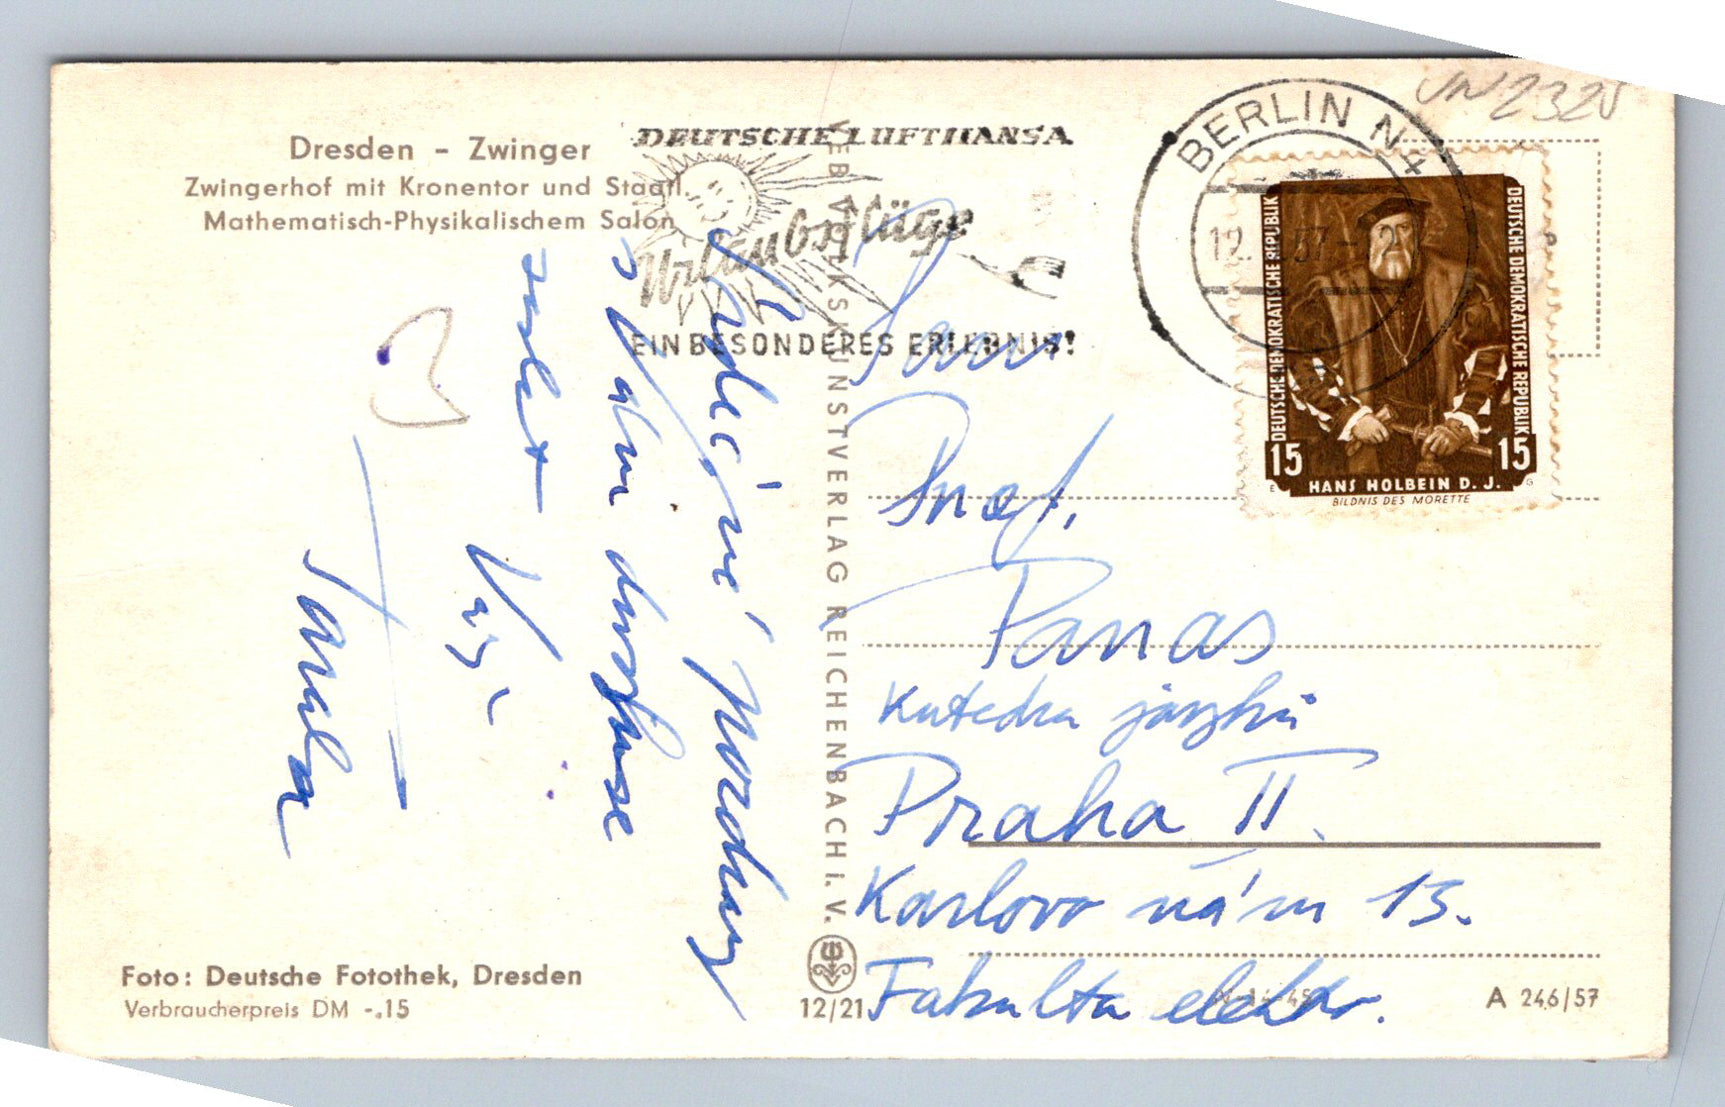 Dresden - Zwinger
Zwingerhof mit Kronentor und Staatl.
Mathematisch-Physikalischem Salon
DEUTSCHE LUFTHANSA
Urlaubsflüge
EIN BESONDERES ERLEBNIS!
BERLIN N4
12. 57
2325
DEUTSCHE DEMOKRATISCHE REPUBLIK
DEUTSCHE DEMOKRATISCHE REPUBLIK
15 15
HANS HOLBEIN D. J.
BILDNIS DES MORETTE
Srdečné pozdravy
Vám
Váš
VEB VOLKSKUNSTVERLAG REICHENBACH i. V.
Pan
Prof.
Panas
Katedra jazyků
Praha II.
Karlovo nám 13.
Fakulta elektr.
Foto: Deutsche Fotothek, Dresden
Verbraucherpreis DM -.15
12/21
A 246/57